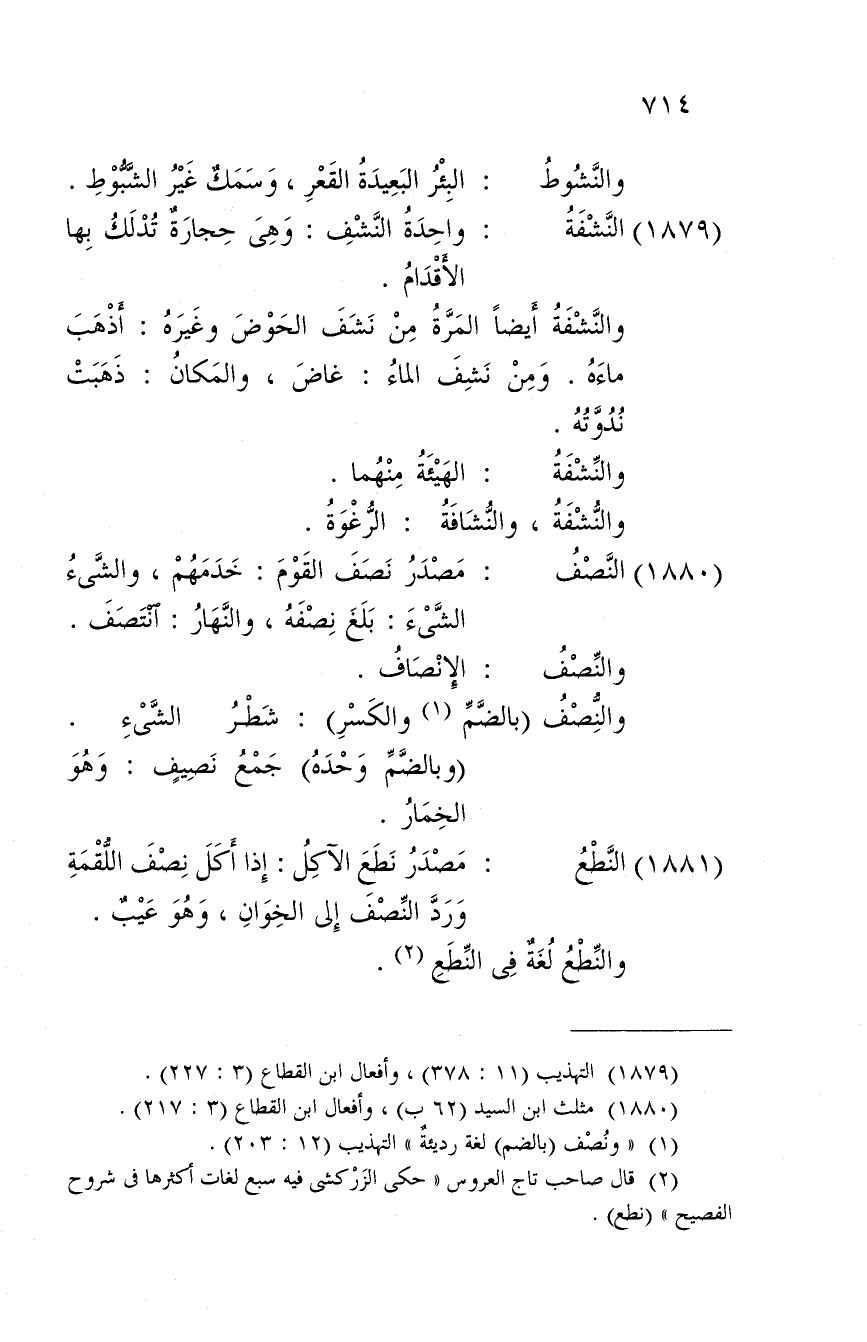 ٧١٤
والنَّشُوطُ : البِئْرُ البَعِيدَةُ القَعْرِ ، وَسَمَكٌ غَيْرُ الشَّبُّوْطِ .
(١٨٧٩) النَّشْفَةُ : واحِدَةُ النَّشْفِ : وَهِىَ حِجارَةٌ تُدْلَكُ بِها
الأَقْدَامُ .
والنَّشْفَةُ أَيضاً المَرَّةُ مِنْ نَشَفَ الحَوْضَ وغَيرَهُ : أَذْهَبَ
ماءَهُ . وَمِنْ نَشِفَ الماءُ : غاضَ ، والمَكانُ : ذَهَبَتْ
نُدُوَّتُهُ .
والنِّشْفَةُ : الهَيْئَةُ مِنْهُما .
والنُّشْفَةُ ، والنُّشَافَةُ : الرُّغْوَةُ .
(١٨٨٠) النَّصْفُ : مَصْدَرُ نَصَفَ القَوْمَ : خَدَمَهُمْ ، والشَّىءُ
الشَّىْءَ : بَلَغَ نِصْفَهُ ، والنَّهَارُ : ٱنْتَصَفَ .
والنِّصْفُ : الإِنْصَافُ .
والنُِّصْفُ (بالضَّمِّ (١) والكَسْرِ) : شَطْرُ الشَّىْءِ .
(وبالضَّمِّ وَحْدَهُ) جَمْعُ نَصِيفٍ : وَهُوَ
الخِمَارُ .
(١٨٨١) النَّطْعُ : مَصْدَرُ نَطَعَ الآكِلُ : إِذا أَكَلَ نِصْفَ اللُّقْمَةِ
وَرَدَّ النِّصْفَ إِلى الخِوَانِ ، وَهُوَ عَيْبٌ .
والنِّطْعُ لُغَةٌ فِى النِّطَعِ (٢) .
(١٨٧٩) التهذيب (١١ : ٣٧٨) ، وأفعال ابن القطاع (٣ : ٢٢٧) .
(١٨٨٠) مثلث ابن السيد (٦٢ ب) ، وأفعال ابن القطاع (٣ : ٢١٧) .
(١) « ونُصْف (بالضم) لغة رديئةٌ » التهذيب (١٢ : ٢٠٣) .
(٢) قال صاحب تاج العروس « حكى الزَرْكشى فيه سبع لغات أكثرها فى شروح
الفصيح » (نطع) .